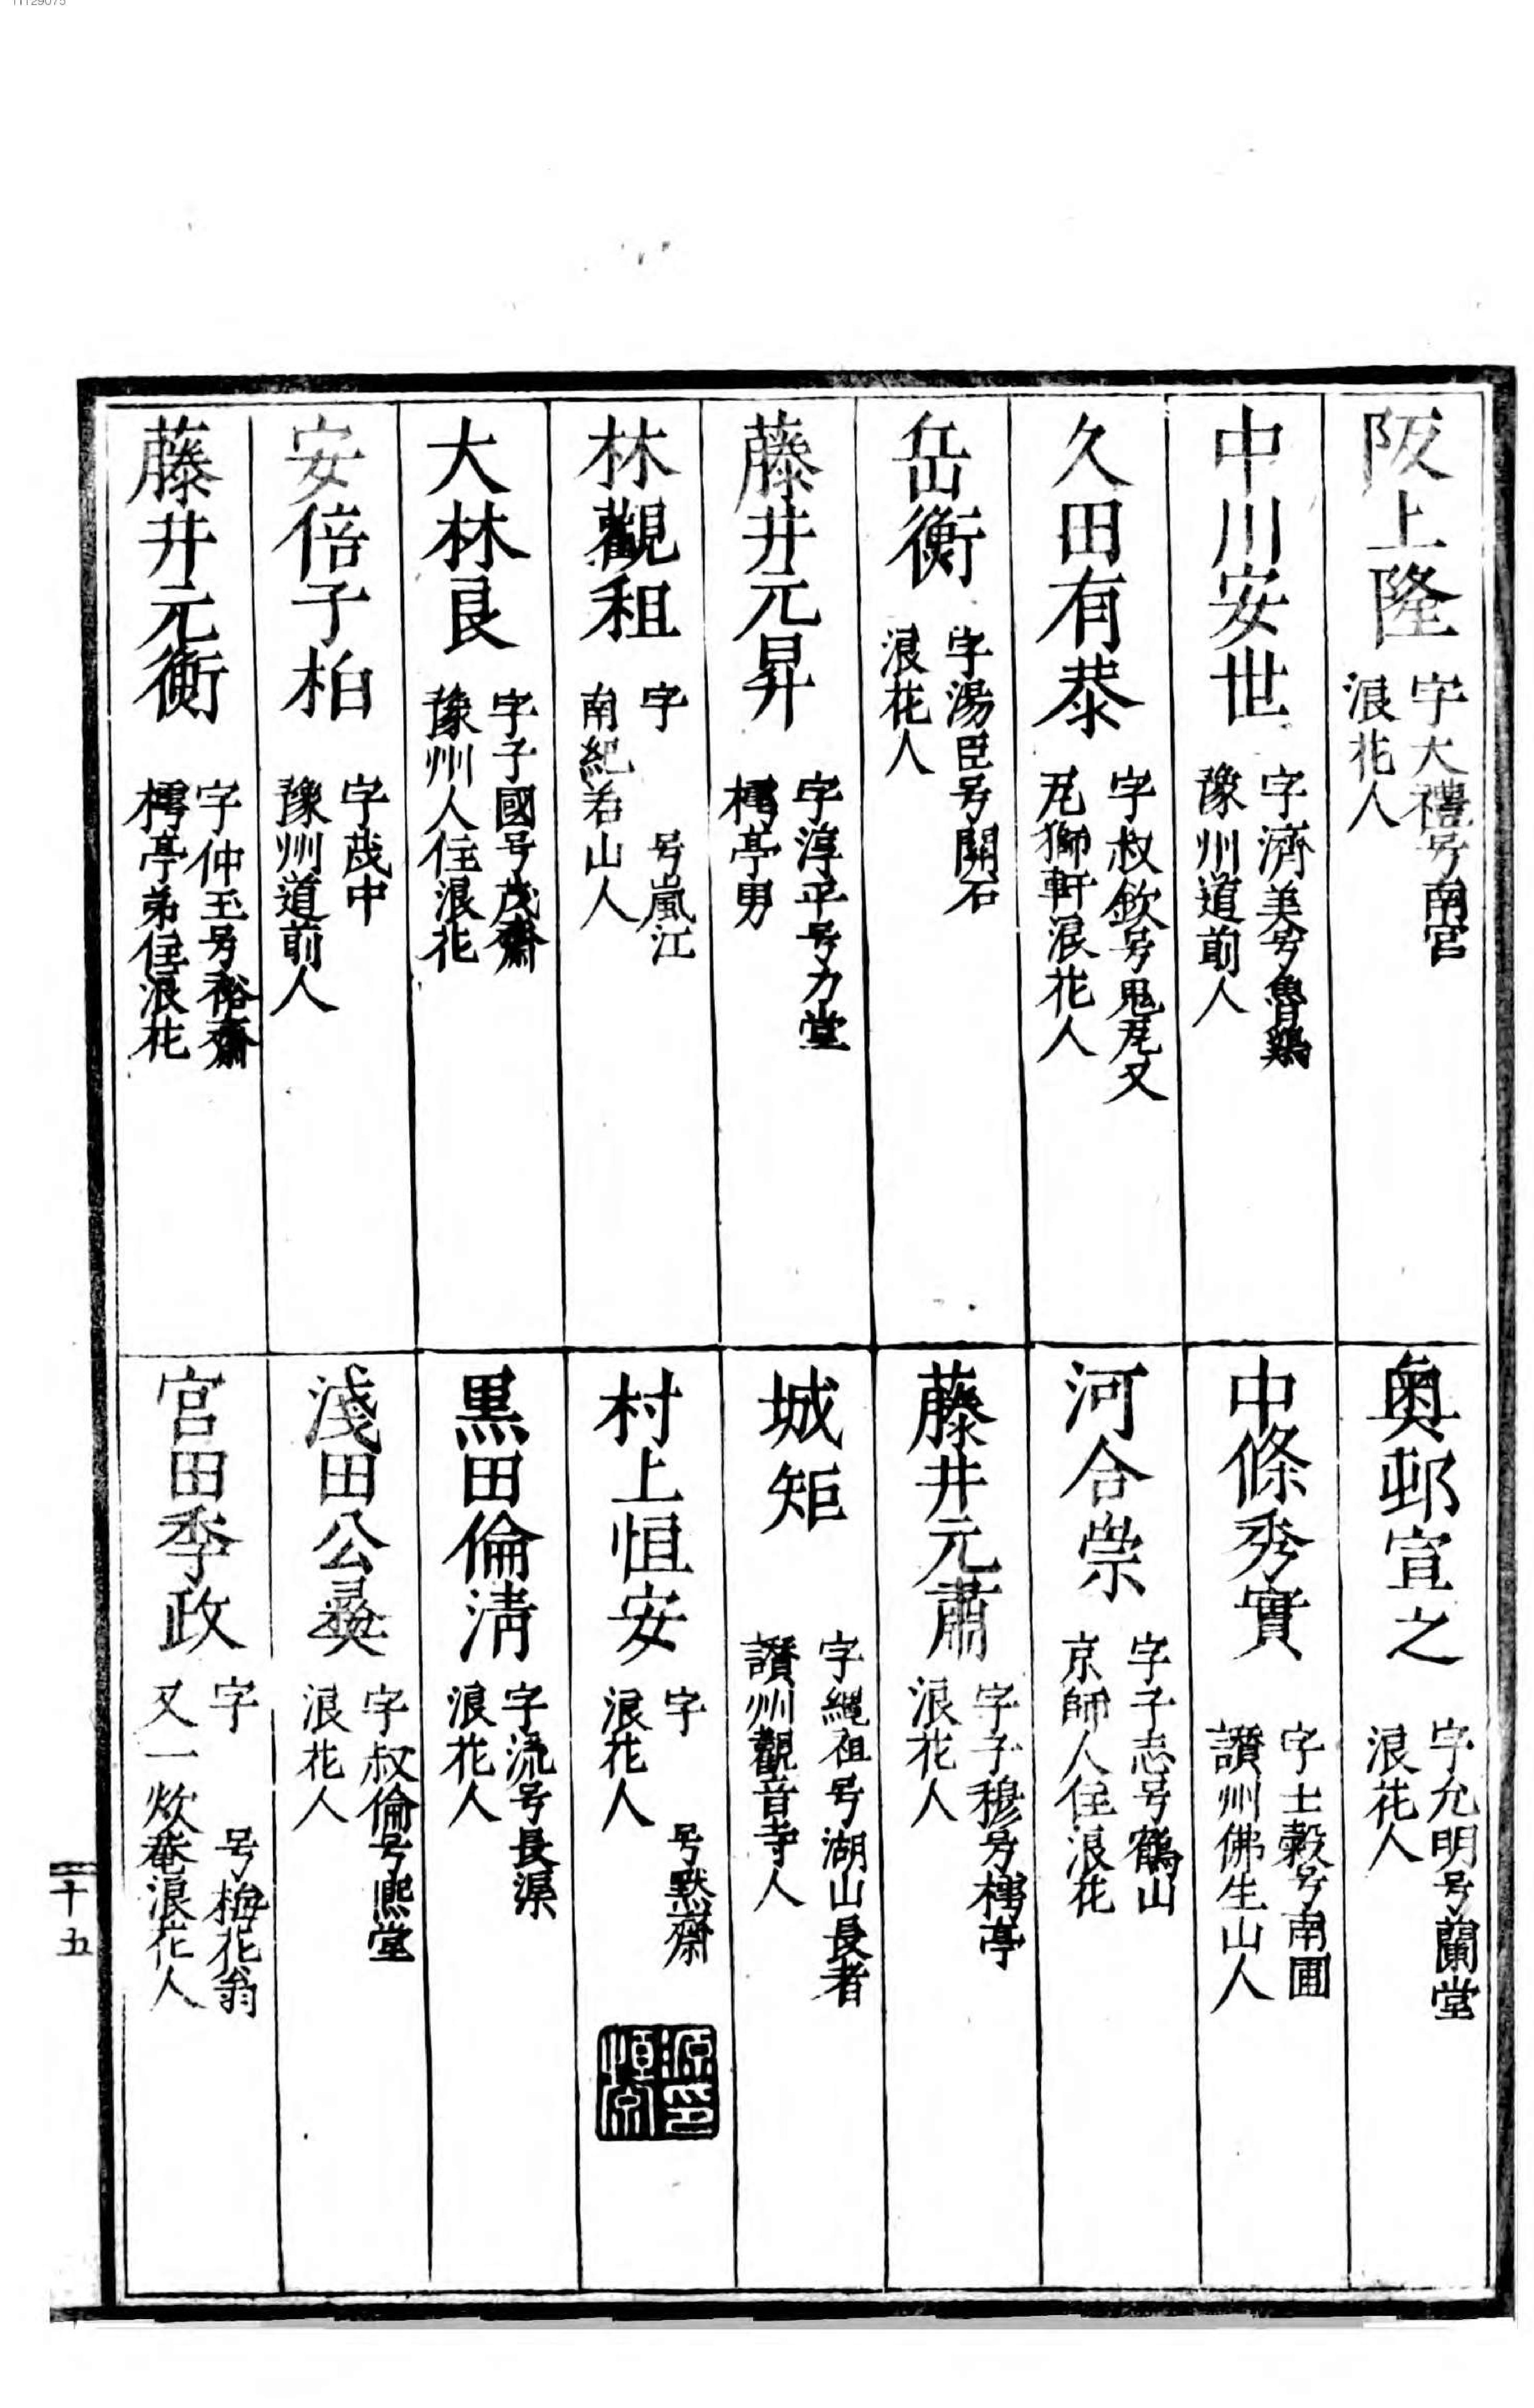 11129075
阪上隆
字大禮号南宮
浪花人
中川安世
字濟美号魯鷄
豫州道前人
久田有恭
字叔欽号鬼瓦又
瓦獅軒浪花人
岳衡
字湯臣号開石
浪花人
藤井元昇
字淳平号力堂
樗亭男
林觀租
字 号嵐江
南紀若山人
大林良
字子國号茂齋
豫州人住浪花
安倍子柏
字茂中
豫州道前人
藤井元衡
字仲玉号裕齋
樗亭弟住浪花
奥邨宣之
字允明号蘭堂
浪花人
中條秀實
字士穀号南圃
讃州佛生山人
河合崇
字子志号鶴山
京師人住浪花
藤井元肅
字子穆号樗亭
浪花人
城矩
字繩祖号湖山長者
讃州觀音寺人
村上恒安
字 号默齋
浪花人
黒田倫清
字流号長淚
浪花人
淺田公彜
字叔倫号熈堂
浪花人
宮田季政
字 号梅花翁
又一炊菴浪花人
十五